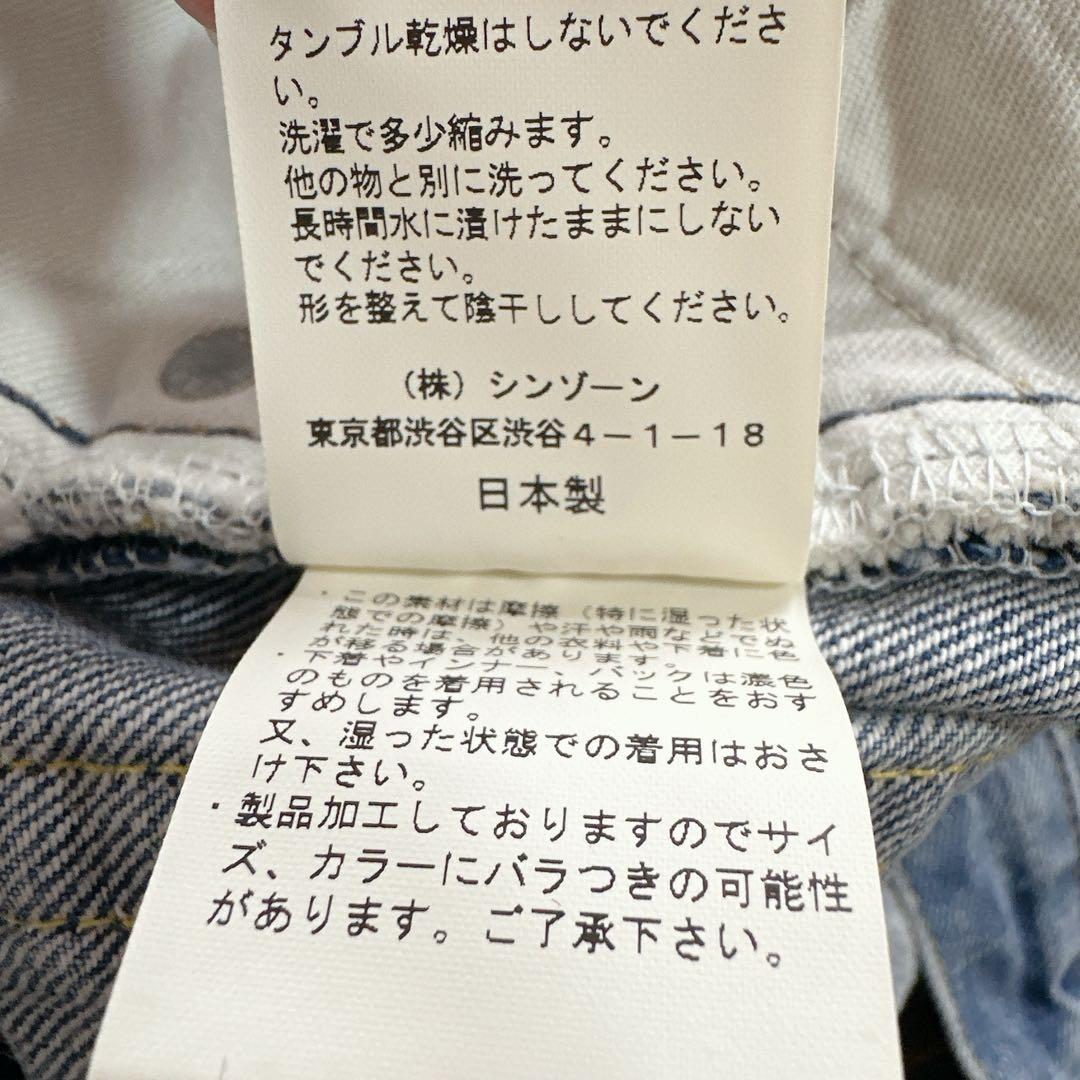 タンブル乾燥はしないでくださ
い。
洗濯で多少縮みます。
他の物と別に洗ってください。
長時間水に漬けたままにしない
でください。
形を整えて陰干ししてください。
（株）シンゾーン
東京都渋谷区渋谷４－１－１８
日本製
・この素材は摩擦（特に湿った状
態での摩擦）や汗や雨などでぬ
れた時は、他の衣料や下着に色
が移る場合があります。
・下着やインナー、バックは濃色
のものを着用されることをおす
すめします。
又、湿った状態での着用はおさ
け下さい。
・製品加工しておりますのでサイ
ズ、カラーにバラつきの可能性
があります。ご了承下さい。